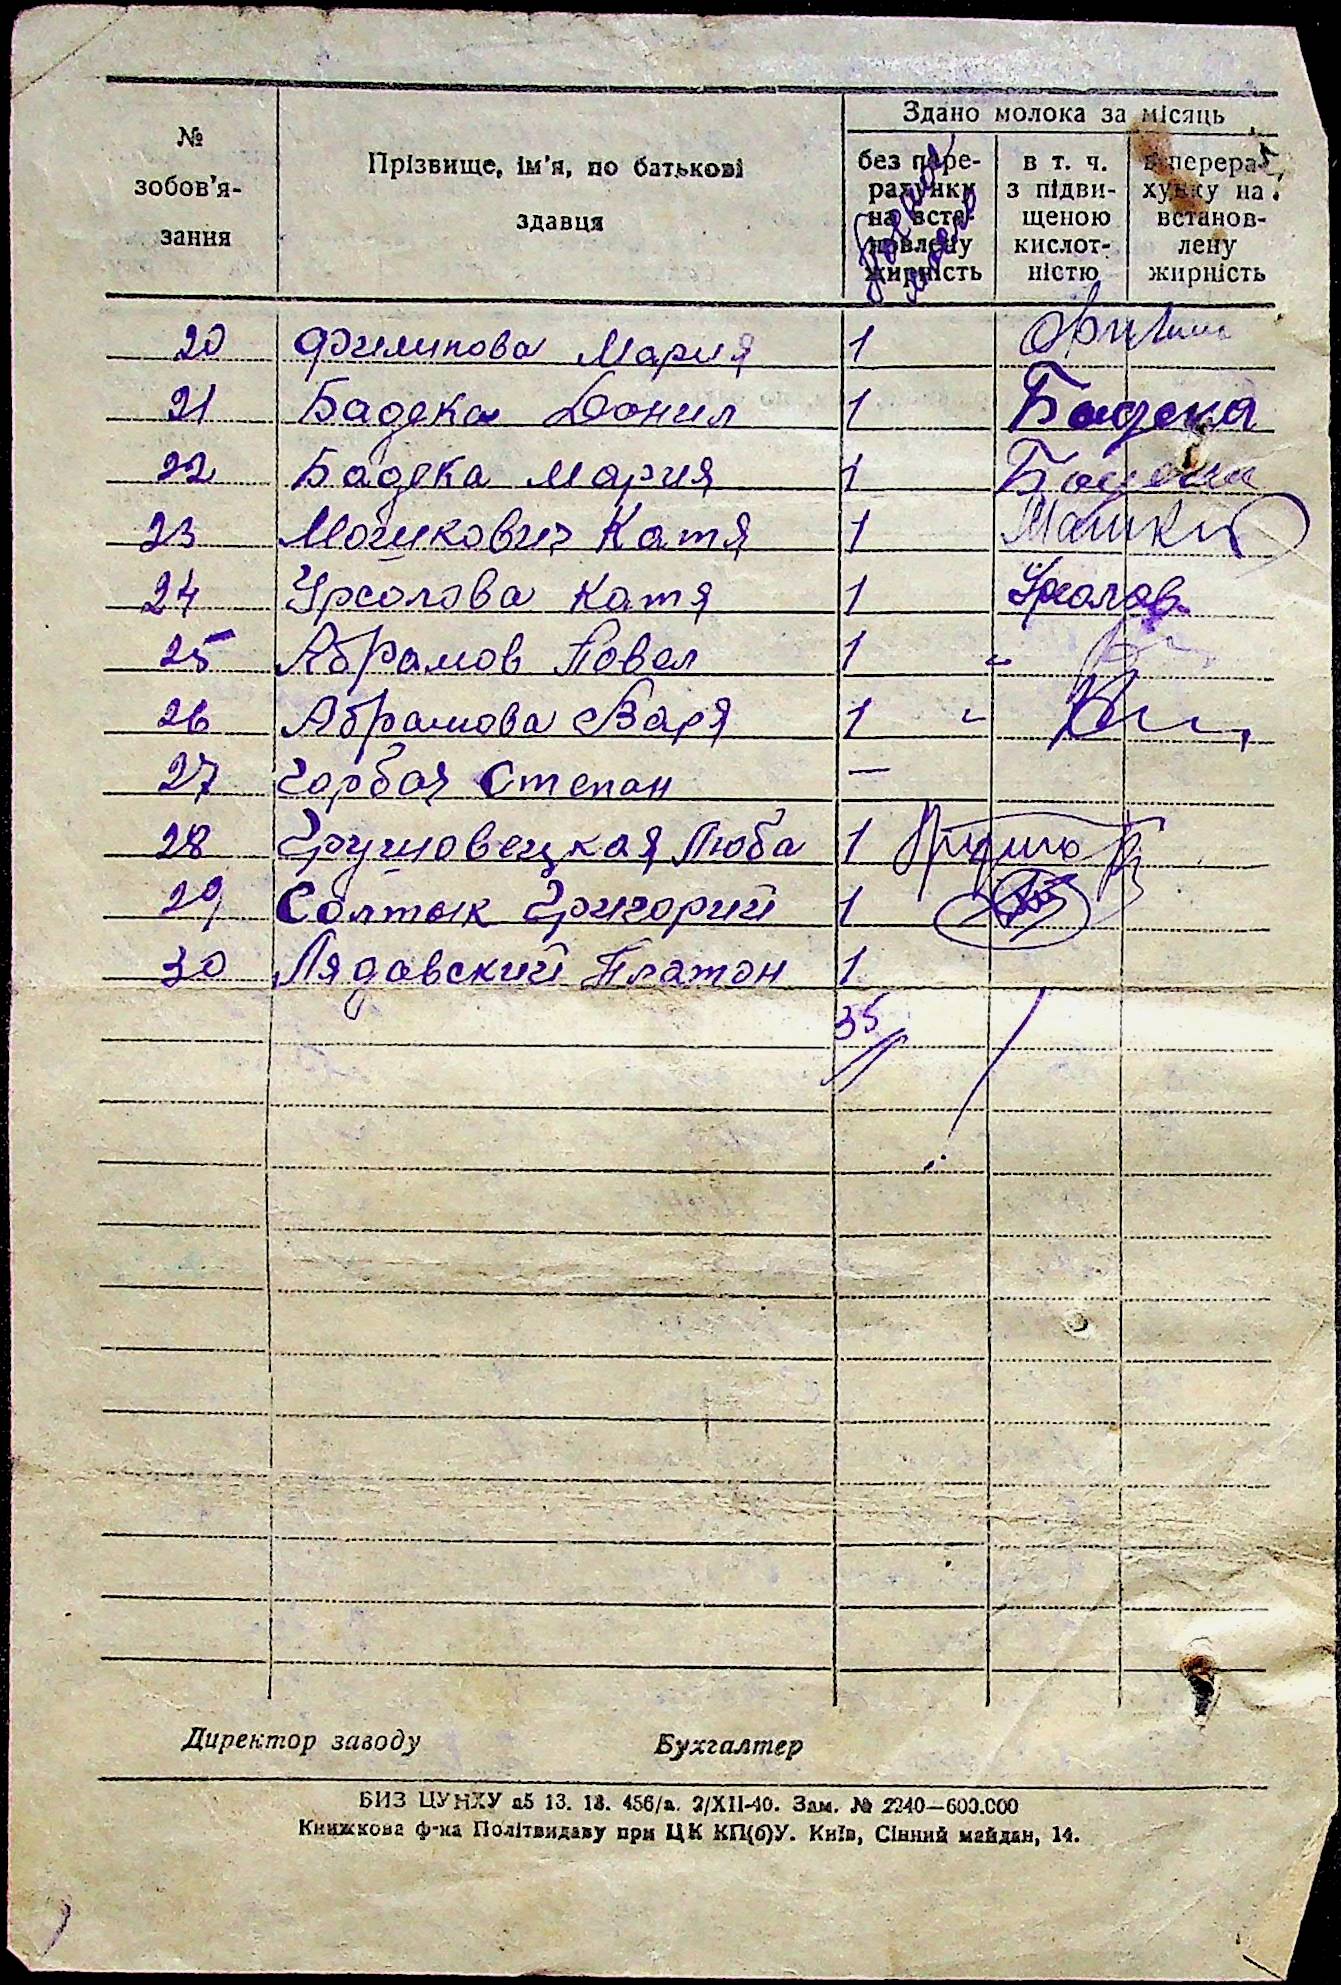 № зобов'я- зання
Прізвище, ім'я, по батькові здавця
Здано молока за місяць
без пере- рахунки на вста- новлену жирність
в т. ч. з підви- щеною кислот- ністю
в перера- хунку на встанов- лену жирність
20 Филипова Мария 1
21 Бадека Донил 1 Бадека
22 Бадека Мария 1 Бадека
23 Мошкович Катя 1
24 Урсолова Катя 1 Урсолов
25 Абрамов Повел 1
26 Абрамова Варя 1
27 Горбач Степан —
28 Грушовецкая Люба 1
29 Солтык Григорий 1
30 Лядовский Платон 1
35
Директор заводу Бухгалтер
БИЗ ЦУНХУ а5 13. 12. 456/а. 2/XII-40. Зам. № 2240—600.000
Книжкова ф-ка Політвидаву при ЦК КП(б)У. Київ, Сінний майдан, 14.